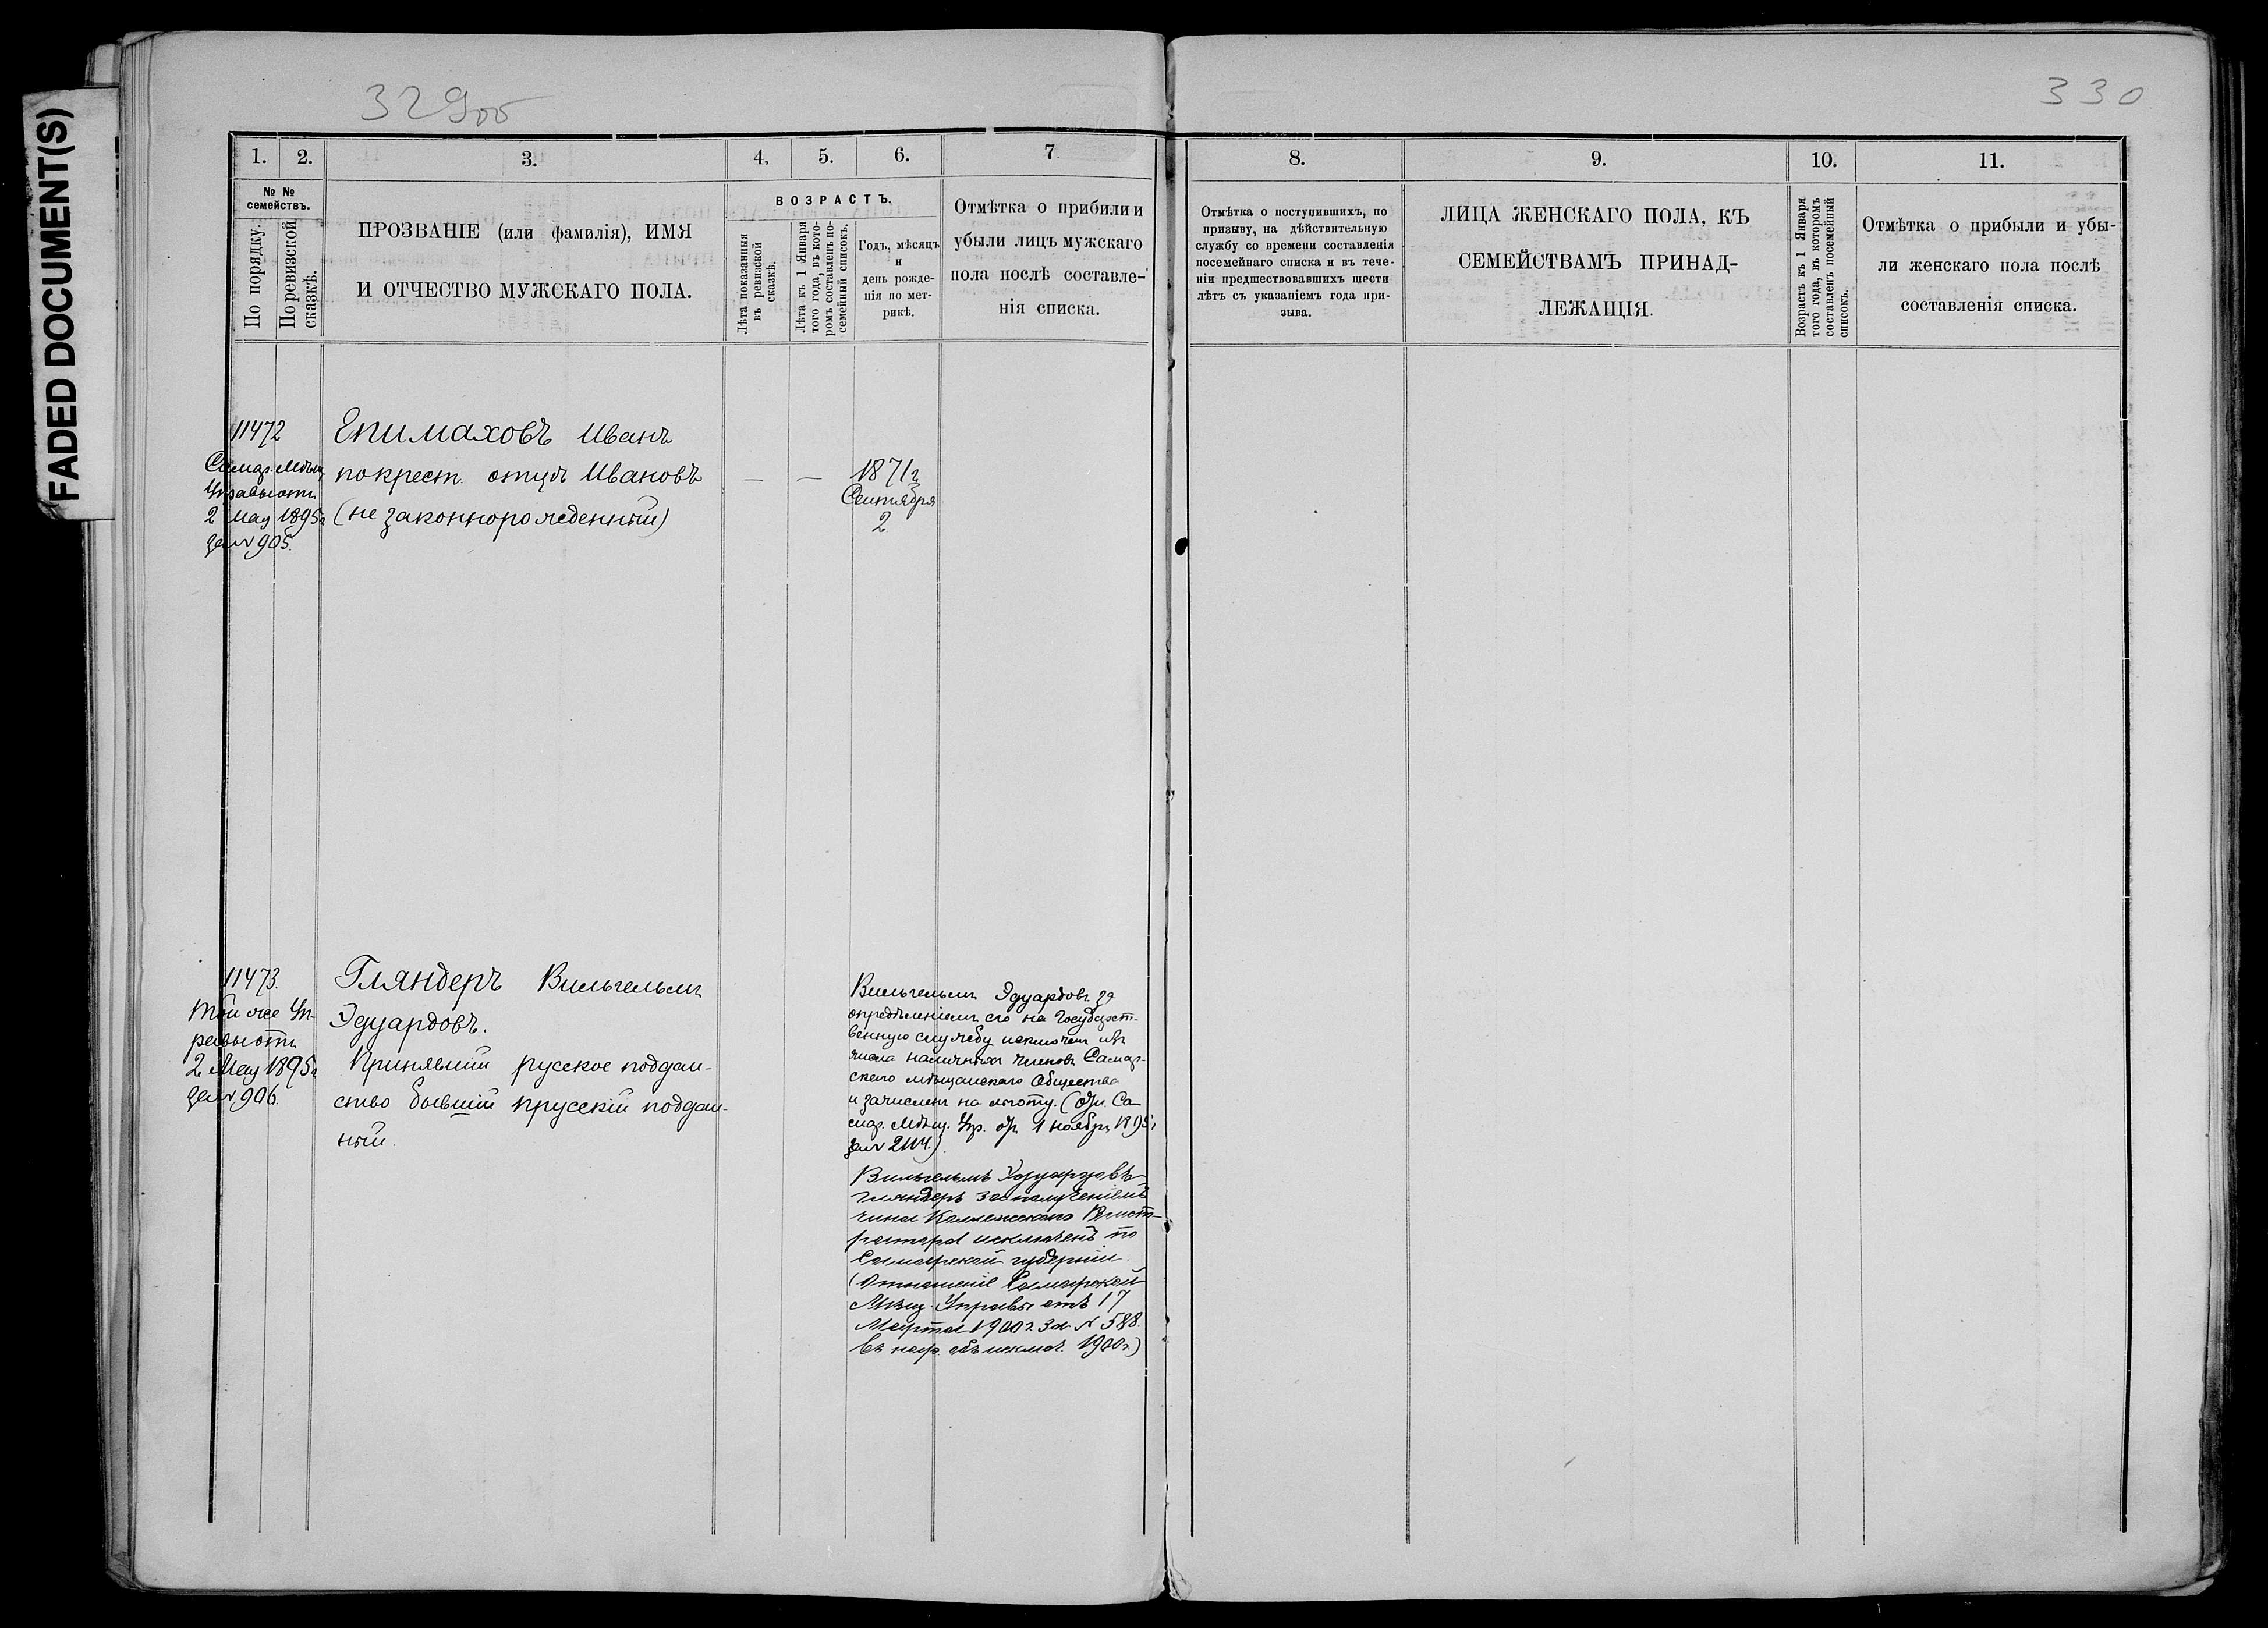 FADED DOCUMENT(S)
329об
330
1. 2. 3. 4. 5. 6. 7
8. 9. 10. 11.
№ №
семействъ.
По порядку.
По ревизской
сказкѣ.
ПРОЗВАНІЕ (или фамилія), ИМЯ
И ОТЧЕСТВО МУЖСКАГО ПОЛА.
ВОЗРАСТЪ.
Лѣта показанныя
въ ревизской
сказкѣ.
Лѣта къ 1 Января
того года, въ кото-
ромъ составленъ по-
семейный списокъ.
Годъ, мѣсяцъ
и
день рожде-
нія по мет-
рикѣ.
Отмѣтка о прибыли и
убыли лицъ мужскаго
пола послѣ составле-
нія списка.
Отмѣтка о поступившихъ, по
призыву, на дѣйствительную
службу со времени составленія
посемейнаго списка и въ тече-
ніи предшествовавшихъ шести
лѣтъ съ указаніемъ года при-
зыва.
ЛИЦА ЖЕНСКАГО ПОЛА, КЪ
СЕМЕЙСТВАМЪ ПРИНАД-
ЛЕЖАЩІЯ.
Возрастъ къ 1 Января
того года, въ которомъ
составленъ посемейный
списокъ.
Отмѣтка о прибыли и убы-
ли женскаго пола послѣ
составленія списка.
11472
Самар. Мѣщ.
Управы отъ
2 Мая 1895г
за № 905.
Епимаховъ Иванъ
по крест. отцѣ Ивановъ
(не законнорожденный)
— —
1871г
Сентября
2
11473.
Той же Уп-
равы отъ
2 Мая 1895г
за № 906.
Гляндеръ Вильгельмъ
Эдуардовъ.
Принявшій русское поддан-
ство бывшій прусскій поддан-
ный.
Вильгельмъ Эдуардовъ за
опредѣленіемъ его на Государст-
венную службу исключенъ изъ
числа наличныхъ членовъ Самар-
скаго мѣщанскаго Общества
и зачисленъ на льготу. (От. Са-
мар. Мѣщ. Упр. отъ 1 ноября 1895г
за № 2114.)
Вильгельмъ Эдуардовъ
Гляндеръ за полученіемъ
чина Коллежскаго Регист-
ратора исключенъ по
Самарской губерніи
(Отношеніе Самарской
Мѣщ. Управы отъ 17
Марта 1900г. за № 588.
Въ нар. объ исключ. 1900г.)